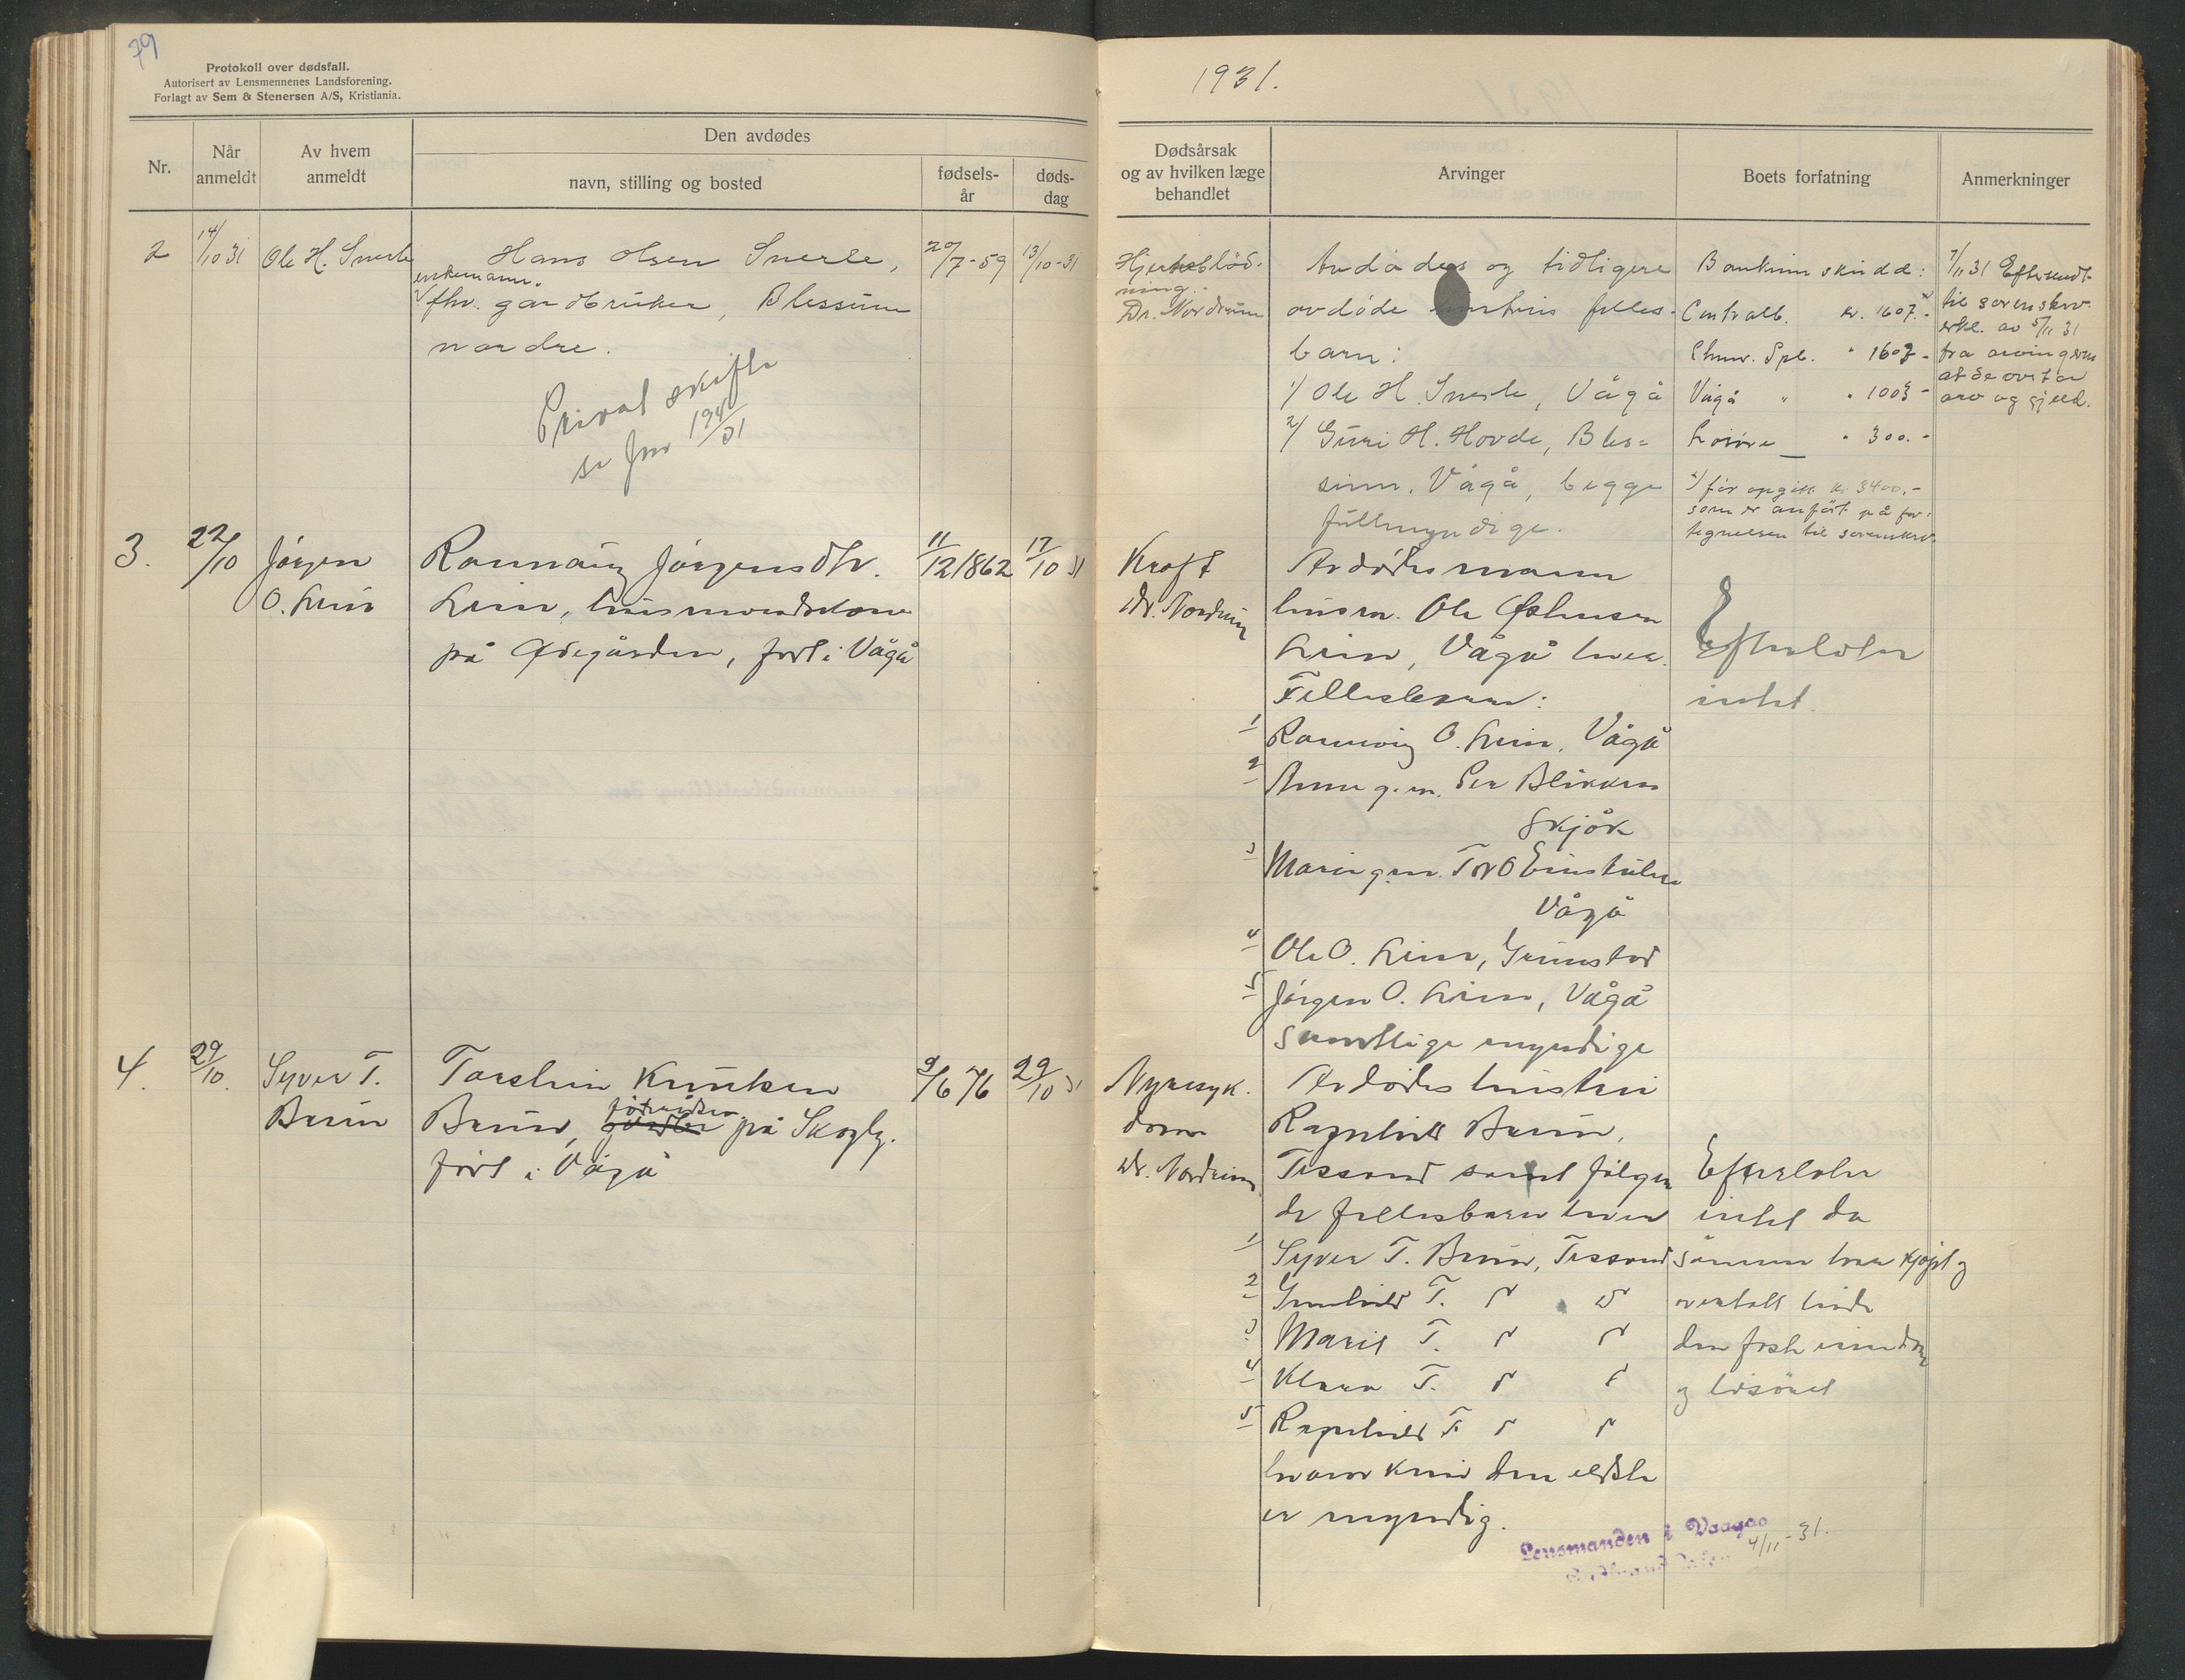 79
Protokoll over dødsfall.
Autorisert av Lensmennenes Landsforening.
Forlagt av Sem & Stenersen A/S, Kristiania.
1931.
Nr.
Når anmeldt
Av hvem anmeldt
Den avdødes
navn, stilling og bosted
fødsels-
år
døds-
dag
Dødsårsak
og av hvilken læge
behandlet
Arvinger
Boets forfatning
Anmerkninger
2
14/10 31
Ole H. Snerle
Hans Olsen Snerle,
enkemann.
fhv. gardbruker, Blessum
nordre.
Privat skifte
se jnr 194/31
20/7-59
13/10-31
Hjerteblød-
ning.
Dr. Nordrum
Avdødes og tidligere
avdøde hustrus felles-
barn:
1/ Ole H. Snerle, Vågå
2/ Guri H. Hovde, Bles=
sum, Vågå, begge
fullmyndige.
Bankinnskudd:
Centralb. kr. 1607.-
Chriv. Spb. " 1607-
Vågå " " 1003-
Løsøre " 300.-
før opgitt kr 3400,-
som er anført på for-
tegnelsen til sorenskr.
7/11 31 Eftersendt
til sorenskr.
erkl. av 5/11 31
fra arvingene
at de overtar
arv og gjeld.
3.
22/10
Jørgen
O. Lien
Rannveig Jørgensdtr.
Lien, husmandskone
på Ødegården, født i Vågå
11/12 1862
17/10 31
Kræft
Dr. Nordrum
Avdødes mann
husm. Ole Østensen
Lien, Vågå hvis
Fellesbarn:
1 Rannveig O. Lien, Vågå
2 Anne g.m. Per Blikken
Skjåk
3 Marie g.m. Tor O
Vågå
4 Ole O. Lien, Grimstad
5 Jørgen O. Lien, Vågå
samtlige myndige
Efterlater
intet.
4.
29/10.
Syver T.
Bruun
Torstein Knutsen
Bruun, på Skogly.
født i Vågå
9/6 76
29/10 31
Nyresyk-
dom
Dr. Nordrum
Avdødes hustru
Ragnhild Bruun,
Tessand samt følgen
de fellesbarn
1 Syver T. Bruun, Tessand
2 Gunhild T. " "
3 Marit T. " "
4 Klara T. " "
5 Ragnhild T. " "
hvorav kun den eldste
er myndig.
Efterlater
intet da
sønnen har kjøpt og
overtatt både
den faste eiendom
og løsøret
Lensmanden i Vaagaa
4/11-31.